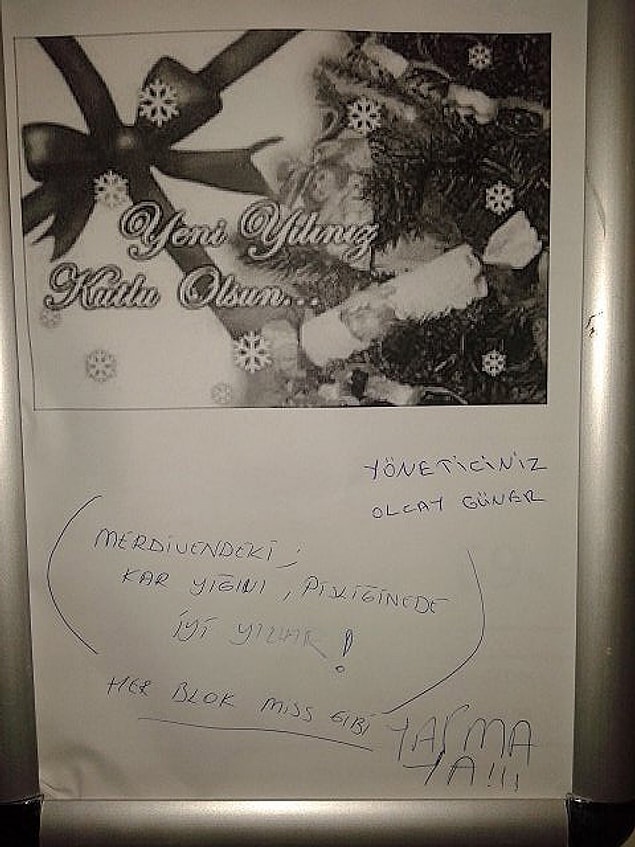 Yeni Yılınız
Kutlu Olsun...
YÖNETİCİNİZ
OLCAY GÜNER
MERDİVENDEKİ;
KAR YIĞINI, PİSLİĞİNEDE
İYİ YILLAR!
HER BLOK MISS GİBİ
YAPMA
YA!!!